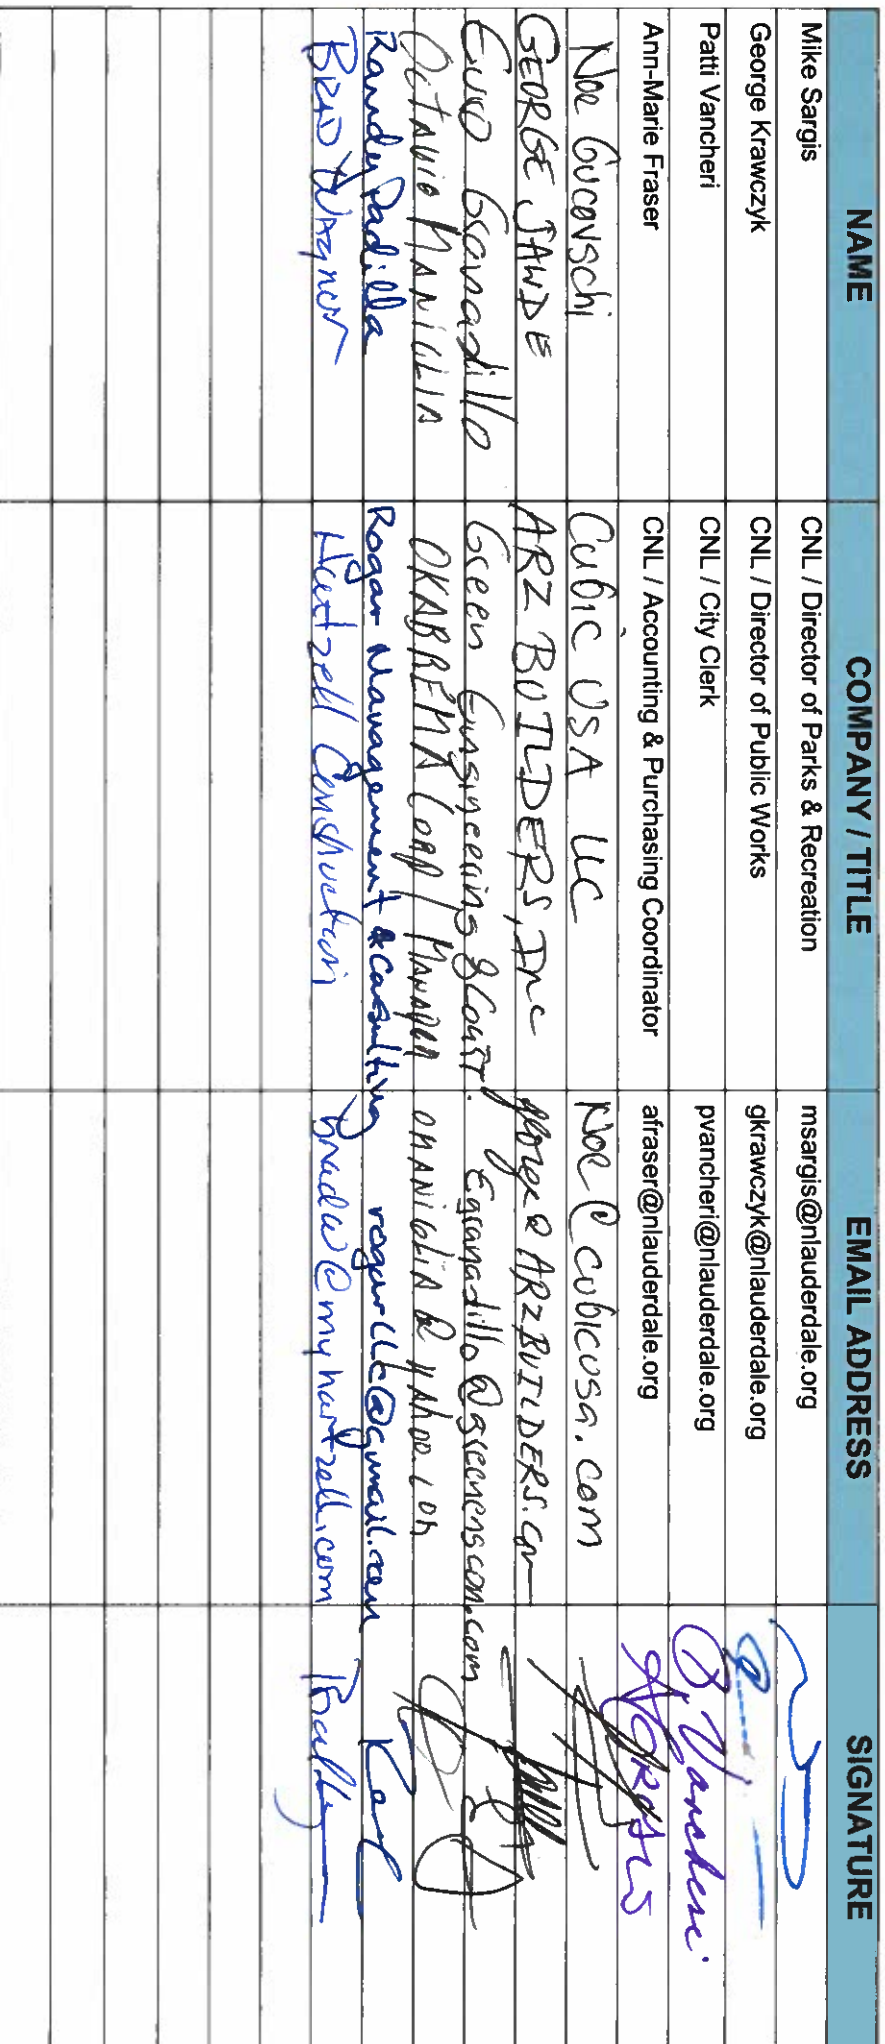 NAME COMPANY / TITLE EMAIL ADDRESS SIGNATURE
Mike Sargis CNL / Director of Parks & Recreation msargis@nlauderdale.org
George Krawczyk CNL / Director of Public Works gkrawczyk@nlauderdale.org
Patti Vancheri CNL / City Clerk pvancheri@nlauderdale.org P. Vancheri
Ann-Marie Fraser CNL / Accounting & Purchasing Coordinator afraser@nlauderdale.org
Noe Gucovschi Cubic USA LLC Noe@cubicusa.com
GEORGE SAWDE ARZ BUILDERS, Inc George@ARZBUILDERS.com
Granadillo Green Engineering & Contr. Egranadillo@greenengcon.com
OCTAVIO MANIGLIA OKABREMA CORP / MANAGER OMANIGLIA@yahoo.com
Randy Padilla Rogar Management & Consulting rogarllc@gmail.com
BRAD WAGNER Hartzell Construction bradw@myhartzell.com